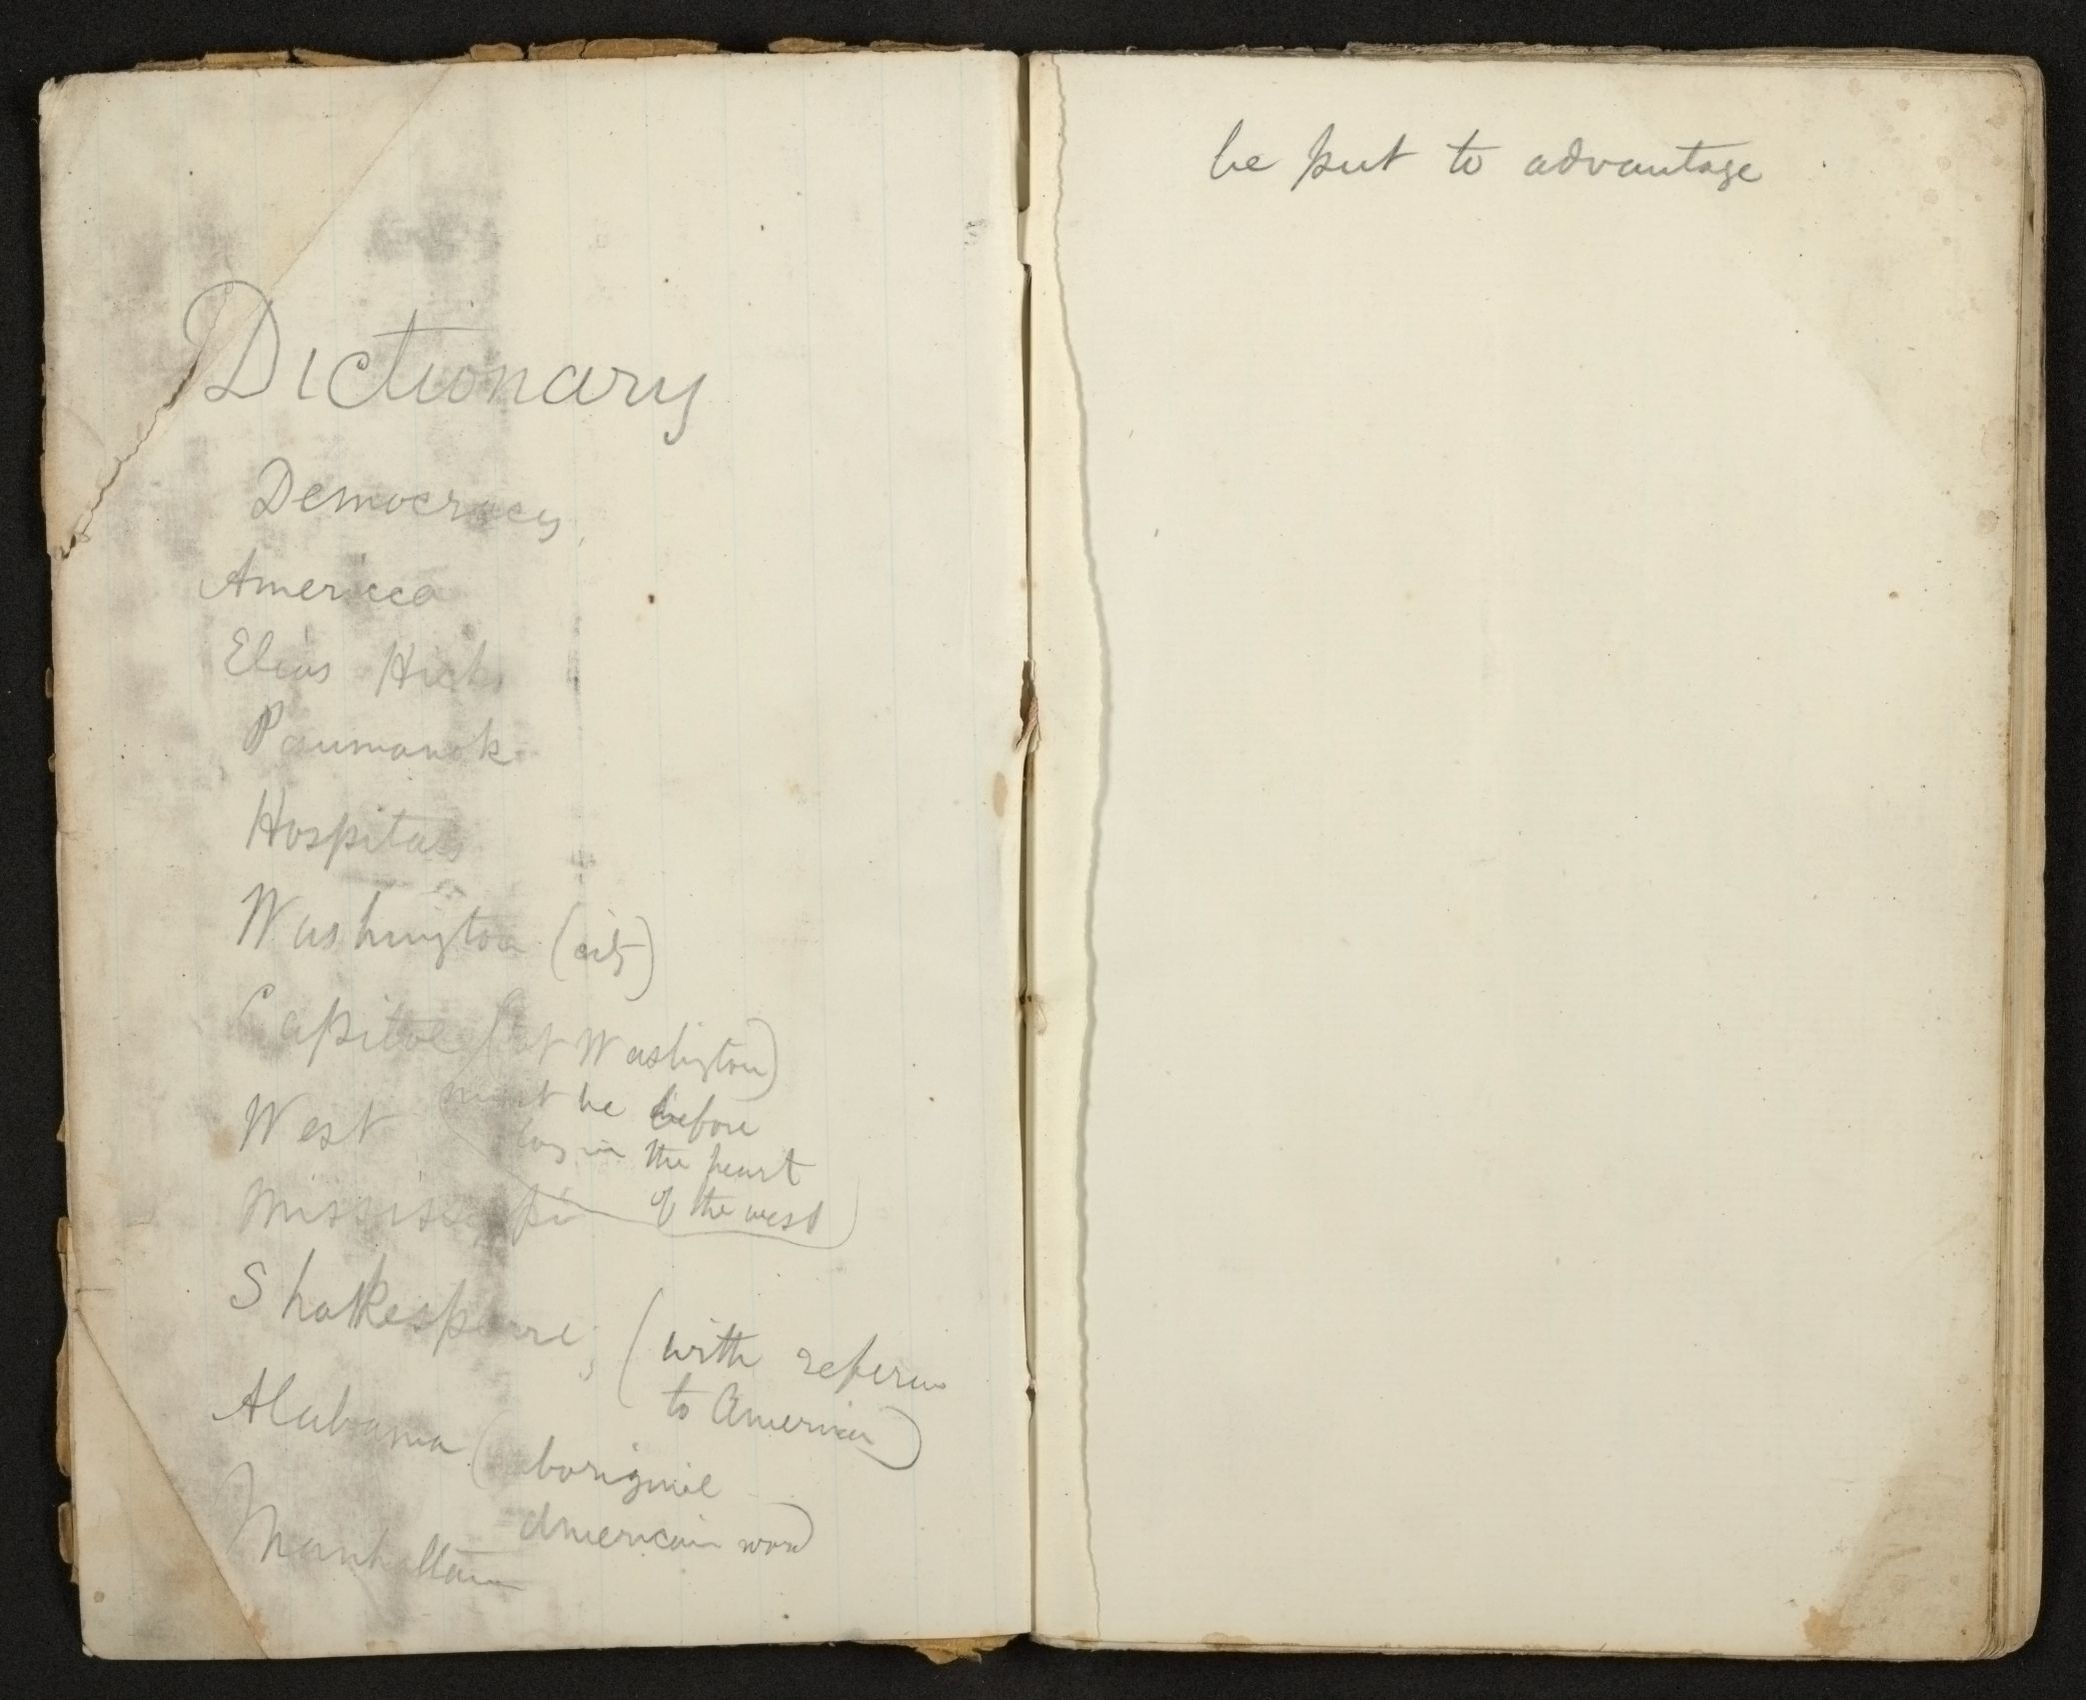 Dictionary
Democracy,
America
Elias Hicks
Paumanok
Hospitals
Washington (city)
Capitol (at Washington)
must be before
long in the heart
of the west
West
Mississippi
Shakespeare, (with referen
to America)
Alabama (aboriginal
American word)
Manhattan
be put to advantage